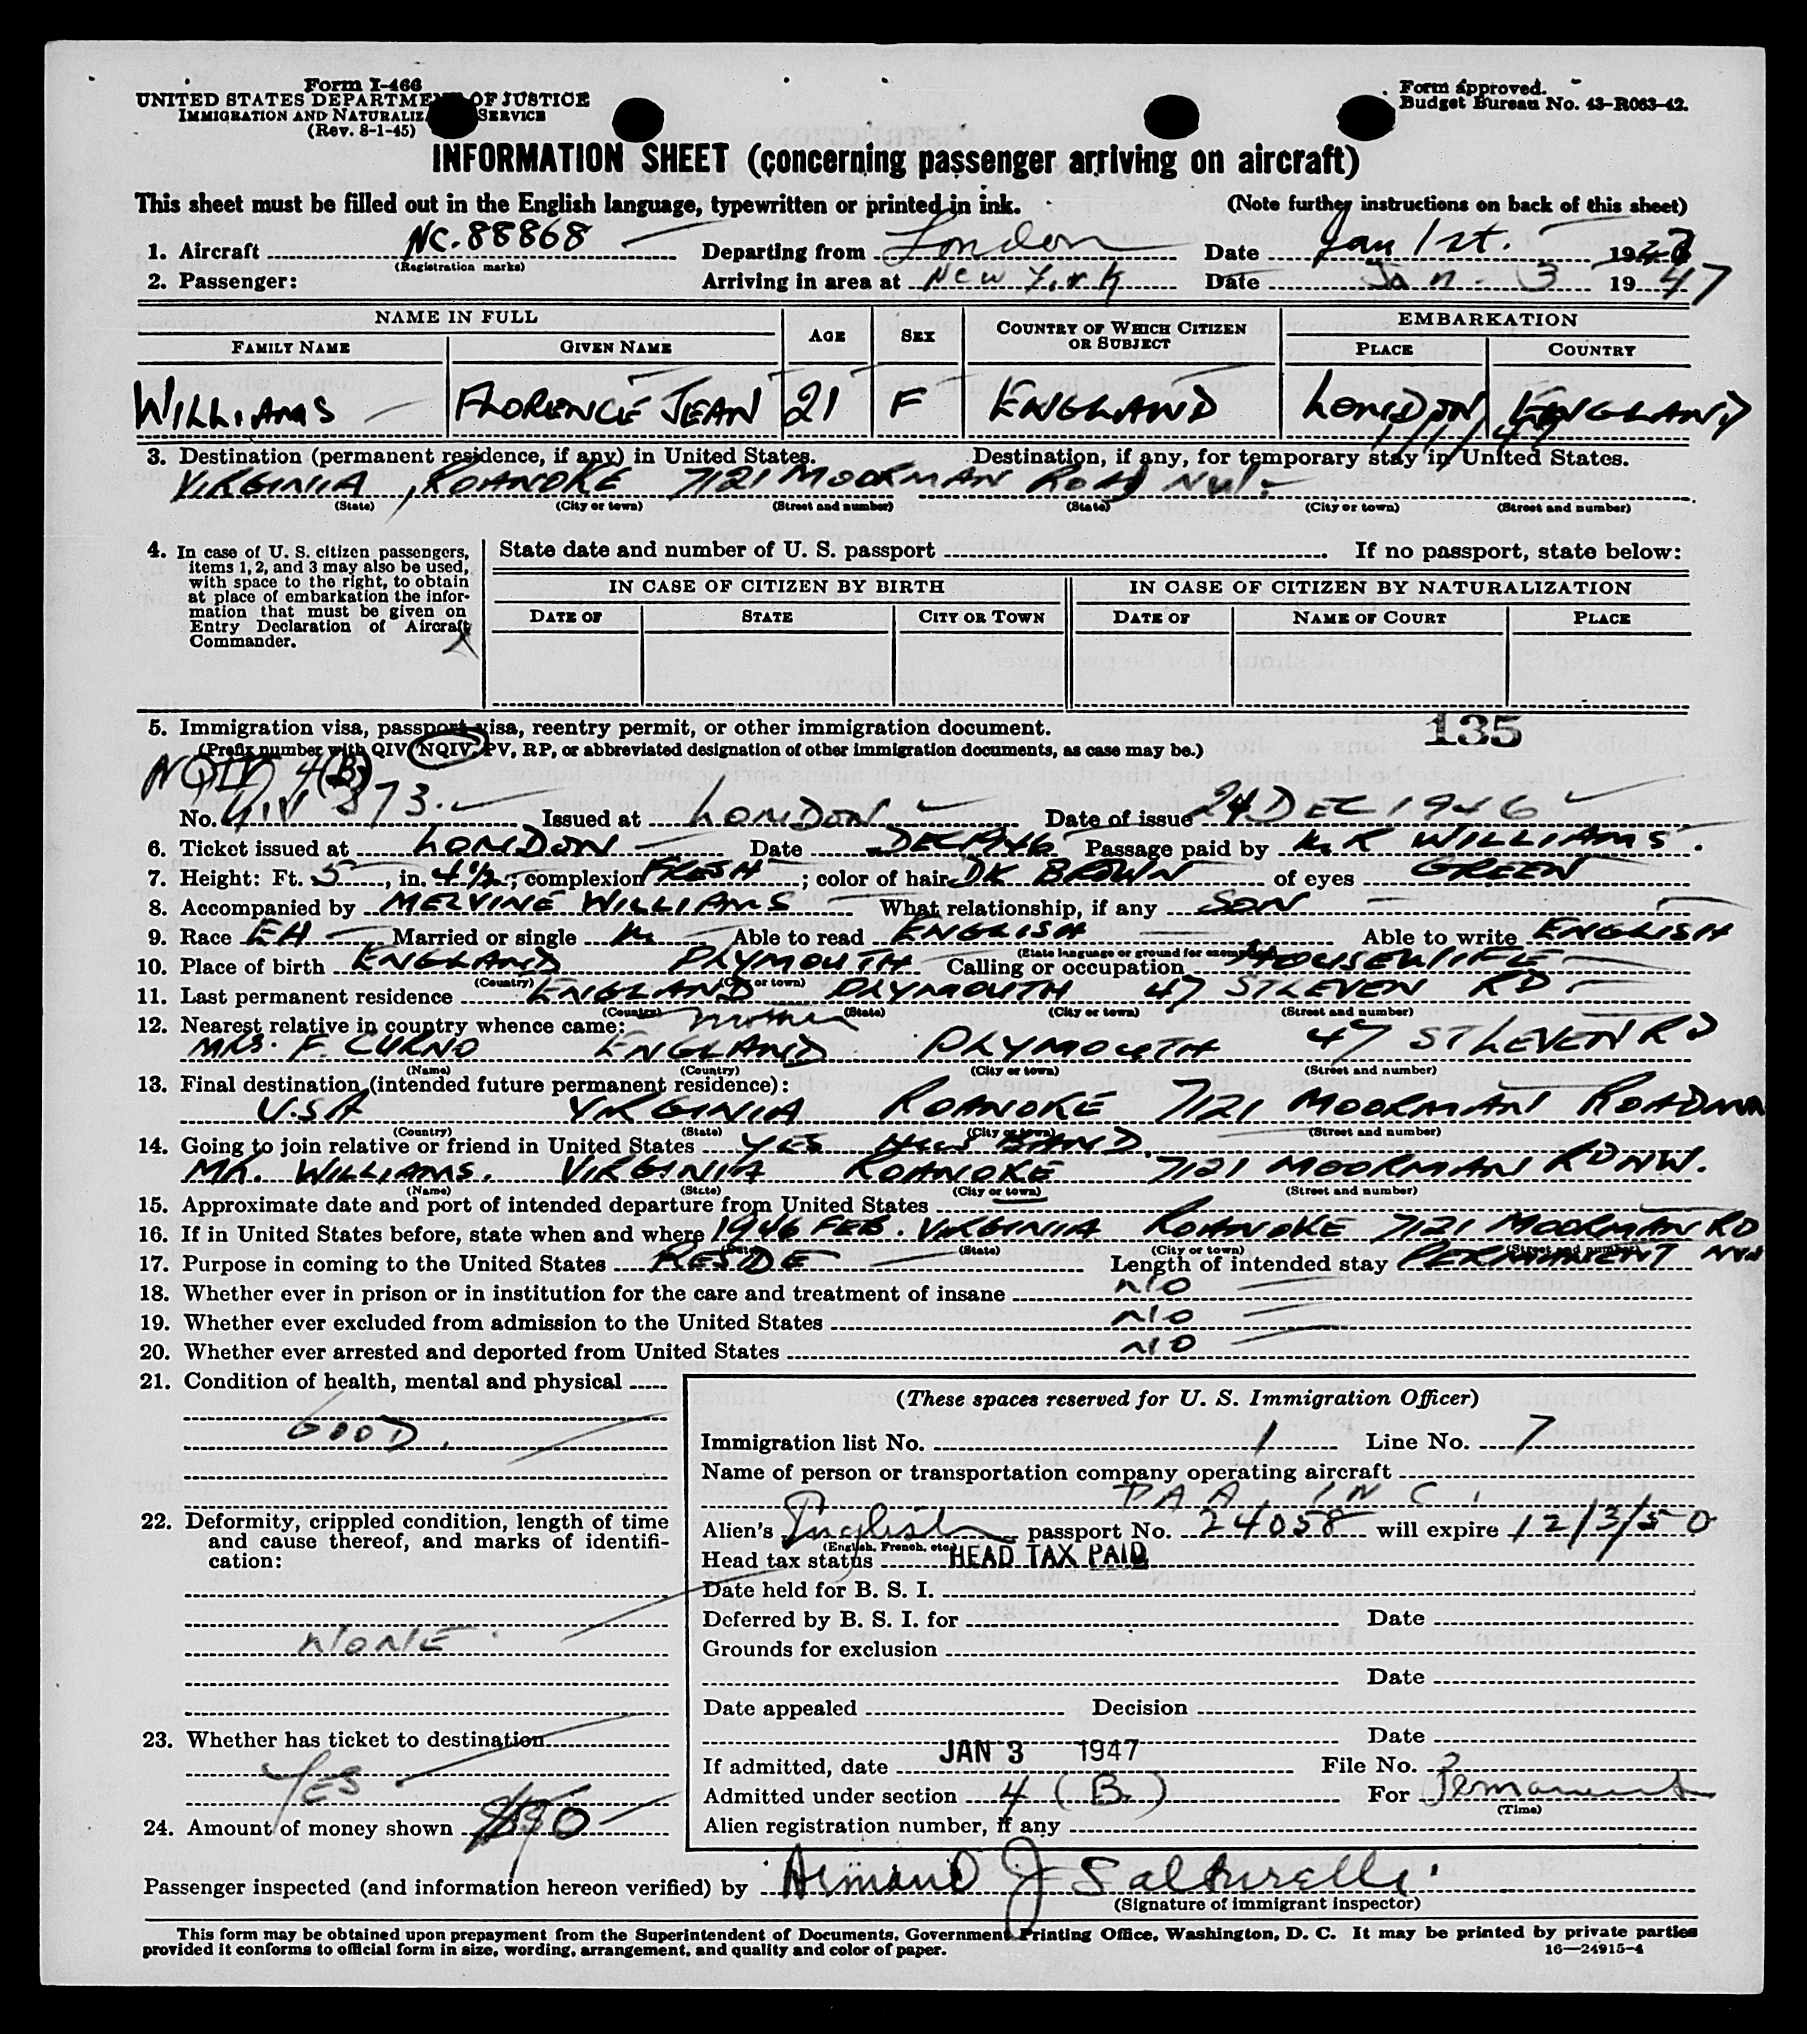 Form I-466
UNITED STATES DEPARTMENT OF JUSTICE
IMMIGRATION AND NATURALIZ SERVICE
(Rev. 8-1-45)
Form approved.
Budget Bureau No. 43-R063-42.
INFORMATION SHEET (concerning passenger arriving on aircraft)
This sheet must be filled out in the English language, typewritten or printed in ink. (Note further instructions on back of this sheet)
1. Aircraft NC.88868 Departing from London Date Jan 1st. 1947
(Registration marks)
2. Passenger: Arriving in area at New York Date Jan - 3 1947
NAME IN FULL AGE SEX COUNTRY OF WHICH CITIZEN OR SUBJECT EMBARKATION
FAMILY NAME GIVEN NAME PLACE COUNTRY
WILLIAMS FLORENCE JEAN 21 F ENGLAND LONDON ENGLAND
1/1/47
3. Destination (permanent residence, if any) in United States. Destination, if any, for temporary stay in United States.
VIRGINIA, ROANOKE 7121 MOORMAN ROAD NW.
(State) (City or town) (Street and number) (State) (City or town) (Street and number)
4. In case of U. S. citizen passengers, items 1, 2, and 3 may also be used, with space to the right, to obtain at place of embarkation the information that must be given on Entry Declaration of Aircraft Commander.
State date and number of U. S. passport If no passport, state below:
IN CASE OF CITIZEN BY BIRTH IN CASE OF CITIZEN BY NATURALIZATION
DATE OF STATE CITY OR TOWN DATE OF NAME OF COURT PLACE
5. Immigration visa, passport visa, reentry permit, or other immigration document. 135
(Prefix number with QIV, NQIV, PV, RP, or abbreviated designation of other immigration documents, as case may be.)
NQIV 4(B)
No. 873. Issued at LONDON Date of issue 24 DEC 1946
6. Ticket issued at LONDON Date DEC 1946 Passage paid by MR WILLIAMS.
7. Height: Ft. 5, in. 4½; complexion FRESH; color of hair DK BROWN of eyes GREEN
8. Accompanied by MELVINE WILLIAMS What relationship, if any SON
9. Race EH Married or single M Able to read ENGLISH Able to write ENGLISH
(State language or ground for exemption)
10. Place of birth ENGLAND PLYMOUTH Calling or occupation HOUSEWIFE
(Country) (City or town)
11. Last permanent residence ENGLAND PLYMOUTH 47 ST LEVEN RD
(Country) (State) (City or town) (Street and number)
12. Nearest relative in country whence came: mother
MRS. F. CURNO ENGLAND PLYMOUTH 47 ST LEVEN RD
(Name) (Country) (City or town) (Street and number)
13. Final destination (intended future permanent residence):
U.S.A VIRGINIA ROANOKE 7121 MOORMAN ROAD NW
(Country) (State) (City or town) (Street and number)
14. Going to join relative or friend in United States YES HUSBAND.
MR. WILLIAMS. VIRGINIA ROANOKE 7121 MOORMAN RD NW.
(Name) (State) (City or town) (Street and number)
15. Approximate date and port of intended departure from United States
16. If in United States before, state when and where 1946 FEB. VIRGINIA ROANOKE 7121 MOORMAN RD NW
(Date) (State) (City or town) (Street and number)
17. Purpose in coming to the United States RESIDE Length of intended stay PERMANENT
18. Whether ever in prison or in institution for the care and treatment of insane NO
19. Whether ever excluded from admission to the United States NO
20. Whether ever arrested and deported from United States NO
21. Condition of health, mental and physical
GOOD.
22. Deformity, crippled condition, length of time and cause thereof, and marks of identification:
NONE.
23. Whether has ticket to destination
YES.
24. Amount of money shown
(These spaces reserved for U. S. Immigration Officer)
Immigration list No. 1 Line No. 7
Name of person or transportation company operating aircraft
PAA INC.
Alien's English passport No. 24058 will expire 12/3/50
(English, French, etc.)
Head tax status HEAD TAX PAID
Date held for B. S. I.
Deferred by B. S. I. for Date
Grounds for exclusion
Date
Date appealed Decision
Date
If admitted, date JAN 3 1947 File No.
Admitted under section 4 (B) For Permanent
(Time)
Alien registration number, if any
Passenger inspected (and information hereon verified) by Armand J Salturelli
(Signature of immigrant inspector)
This form may be obtained upon prepayment from the Superintendent of Documents, Government Printing Office, Washington, D. C. It may be printed by private parties
provided it conforms to official form in size, wording, arrangement, and quality and color of paper. 16—24915-4